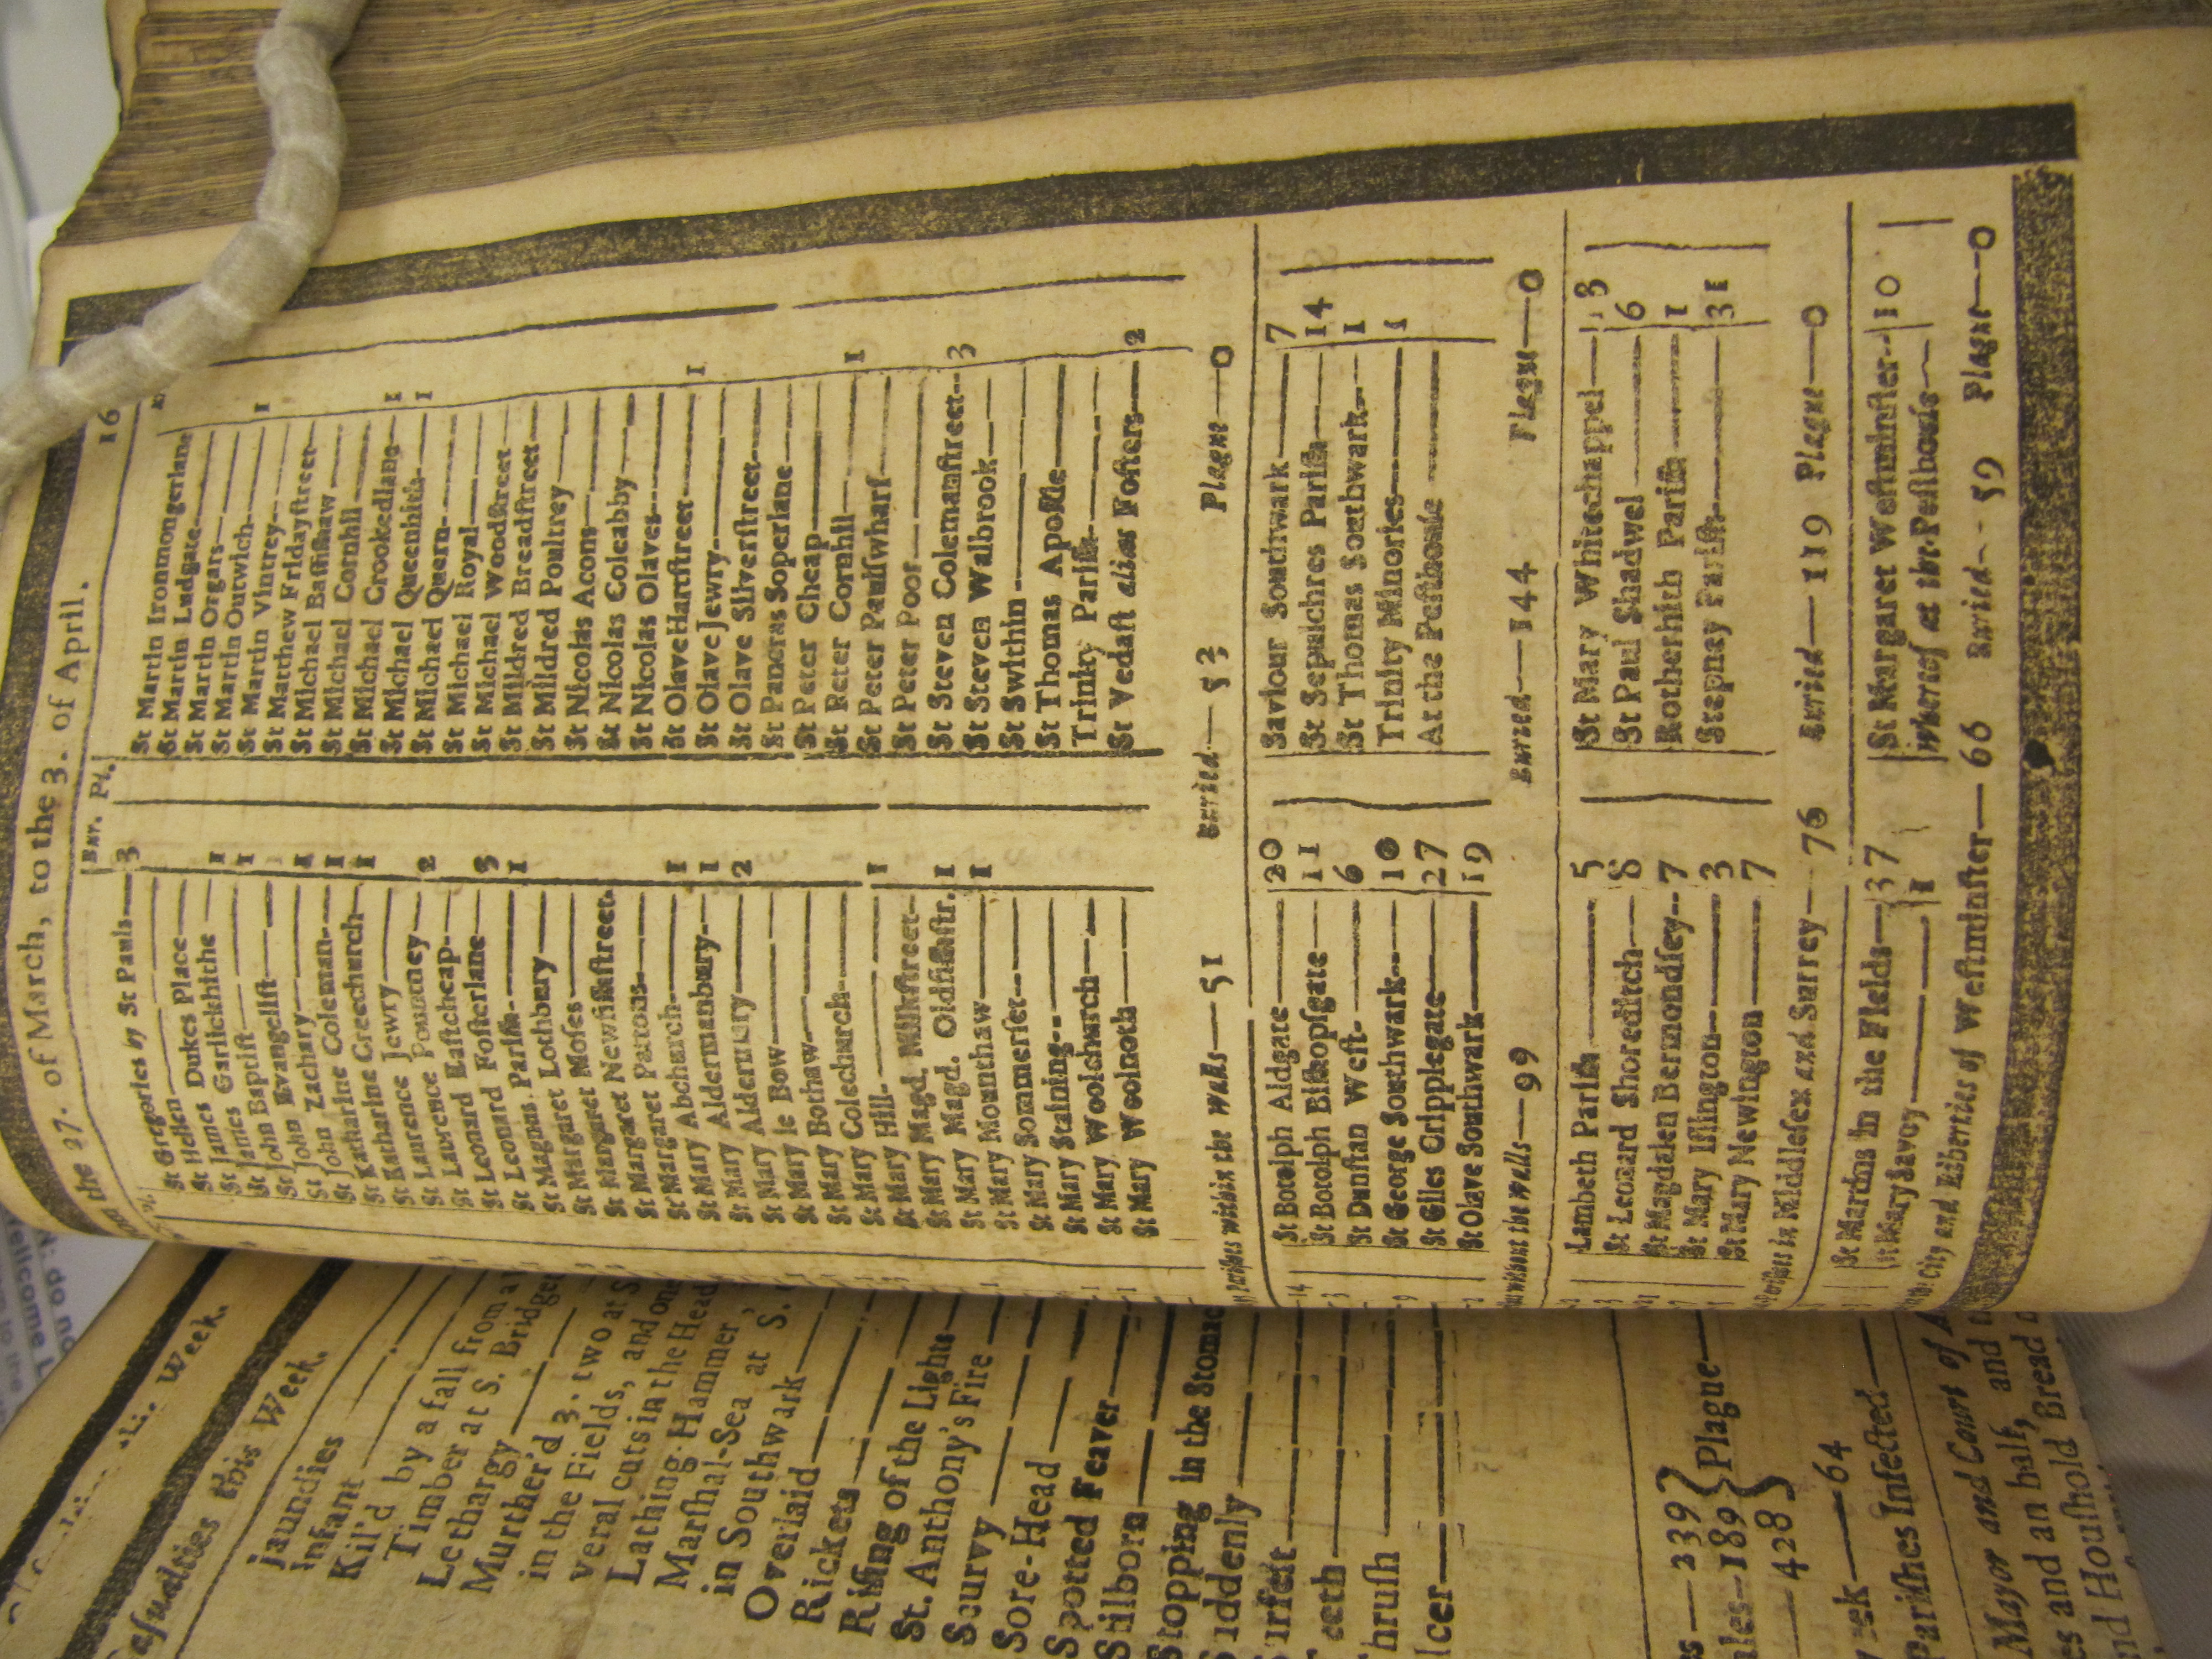 the 27. of March, to the 3. of April. 16
Bur. Pl.
St Gregories by St Pauls—3
St Hellen—
St James Dukes Place—
St James Garlickhithe—1
St John Baptist—1
St John Evangelist—
St John Zachary—1
St Katharine Coleman—1
St Katharine Creechurch—1
St Laurence Jewry—
St Laurence Pountney—2
St Leonard Eastcheap—
St Leonard Fosterlane—3
St Magnus Parish—1
St Margaret Lothbury—
St Margaret Moses—
St Margaret Newfishstreet.
St Margaret Pattons—
St Mary Abchurch—1
St Mary Aldermanbury—1
St Mary Aldermary—2
St Mary le Bow—
St Mary Bothaw—
St Mary Colechurch—
St Mary Hill—1
St Mary Magd. Milkstreet—
St Mary Magd. Oldfishstr. 1
St Mary Mounthaw—1
St Mary Sommerset—
St Mary Staining—
St Mary Woolchurch—
St Mary Woolnoth—
St Martin Ironmongerlane
St Martin Ludgate—
St Martin Orgars—
St Martin Outwich—1
St Martin Vintrey—
St Matthew Fridaystreet—
St Michael Bassishaw—
St Michael Cornhil—
St Michael Crookedlane—1
St Michael Queenhith—1
St Michael Quern—
St Michael Royal—
St Michael Woodstreet—
St Mildred Breadstreet—
St Mildred Poultrey—
St Nicolas Acons—
St Nicolas Coleabby—
St Nicolas Olaves—
St Olave Hartstreet—1
St Olave Jewry—
St Olave Silverstreet—
St Pancras Soperlane—
St Peter Cheap—
St Peter Cornhil—1
St Peter Paulswharf—
St Peter Poor—
St Steven Colemanstreet—3
St Steven Walbrook—
St Swithin—
St Thomas Apostle—
Trinity Parish—
St Vedast alias Fosters—2
Parishes within the walls—51 Buried—53 Plague—0
St Botolph Aldgate—20
St Botolph Bishopsgate—11
St Dunstan West—6
St George Southwark—10
St Giles Cripplegate—27
St Olave Southwark—19
Saviour Southwark—7
St Sepulchres Parish—14
St Thomas Southwark—1
Trinity Minories—1
At the Pesthouse—
without the walls—99 Buried—144 Plague—0
Lambeth Parish—5
St Leonard Shoreditch—8
St Magdalen Bermondsey—7
St Mary Islington—3
St Mary Newington—7
St Mary Whitechappel—13
St Paul Shadwel—6
Rotherhith Parish—1
Stepney Parish—31
Parishes in Middlesex and Surrey—76 Buried—119 Plague—0
St Martins in the Fields—37
St Mary Savoy—1
St Margaret Westminster—10
whereof at the Pesthouse—
City and Liberties of Westminster—66 Buried—59 Plague—0
Week.
this Week.
Jaundies
Infant
Kil'd by a fall from a
Timber at S. Bridget
Lethargy
Murther'd 3. two at S.
in the Fields, and one
veral cuts in the Head
Lathing-Hammer,
Marshal-Sea at S.
in Southwark
Overlaid
Rickets
Rising of the Lights
St. Anthony's Fire
Scurvy
Sore-Head
Spotted Feaver
Stilborn
Stopping in the Stomac
Suddenly
Surfet
Teeth
Thrush
239
189 Plague
428
64
Parishes Infected
Mayor and Court of A
es and an half, and
and Houshold Bread